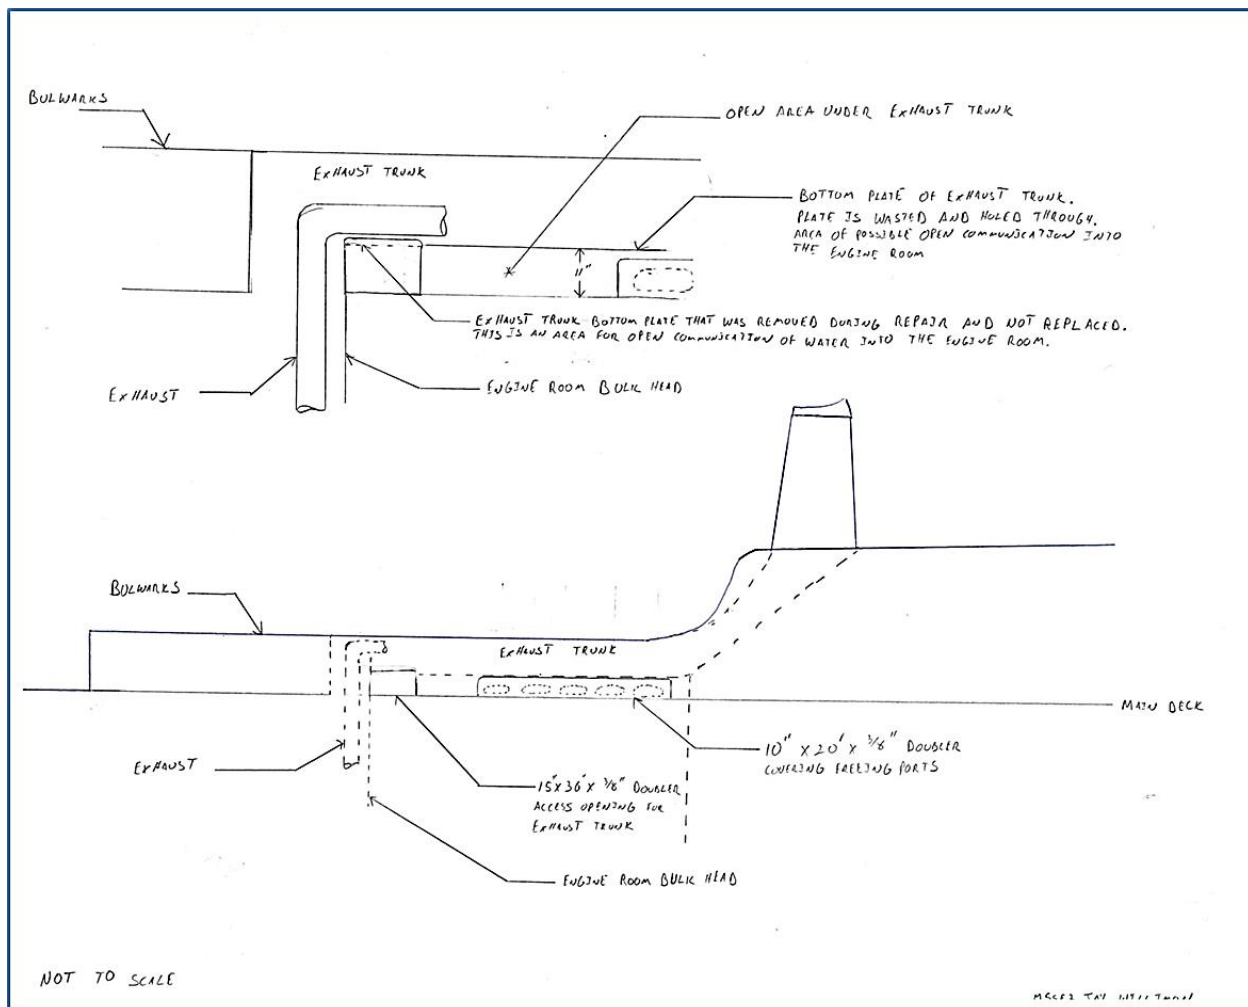 BULWARKS
OPEN AREA UNDER EXHAUST TRUNK
EXHAUST TRUNK
BOTTOM PLATE OF EXHAUST TRUNK.
PLATE IS WASTED AND HOLED THROUGH.
AREA OF POSSIBLE OPEN COMMUNICATION INTO
THE ENGINE ROOM
11"
EXHAUST TRUNK BOTTOM PLATE THAT WAS REMOVED DURING REPAIR AND NOT REPLACED.
THIS IS AN AREA FOR OPEN COMMUNICATION OF WATER INTO THE ENGINE ROOM.
EXHAUST
ENGINE ROOM BULK HEAD
BULWARKS
EXHAUST TRUNK
MAIN DECK
EXHAUST
10" X 20' X 3/8" DOUBLER
COVERING FREEING PORTS
15" X 36" X 3/8" DOUBLER
ACCESS OPENING FOR
EXHAUST TRUNK
ENGINE ROOM BULK HEAD
NOT TO SCALE